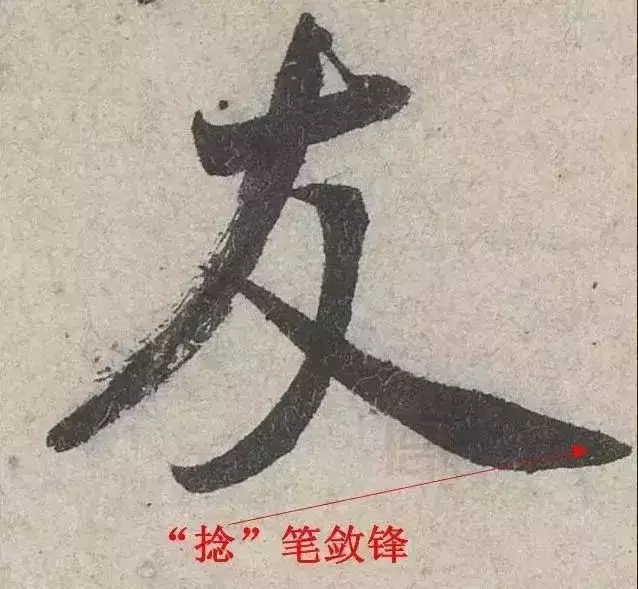 友
“捻”笔敛锋